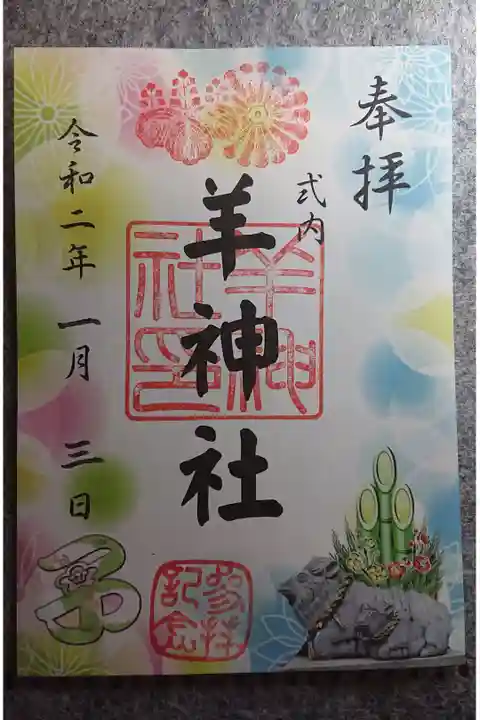 奉拝
式内
羊神社
羊神社印
令和二年 一月 三日
参拝記念